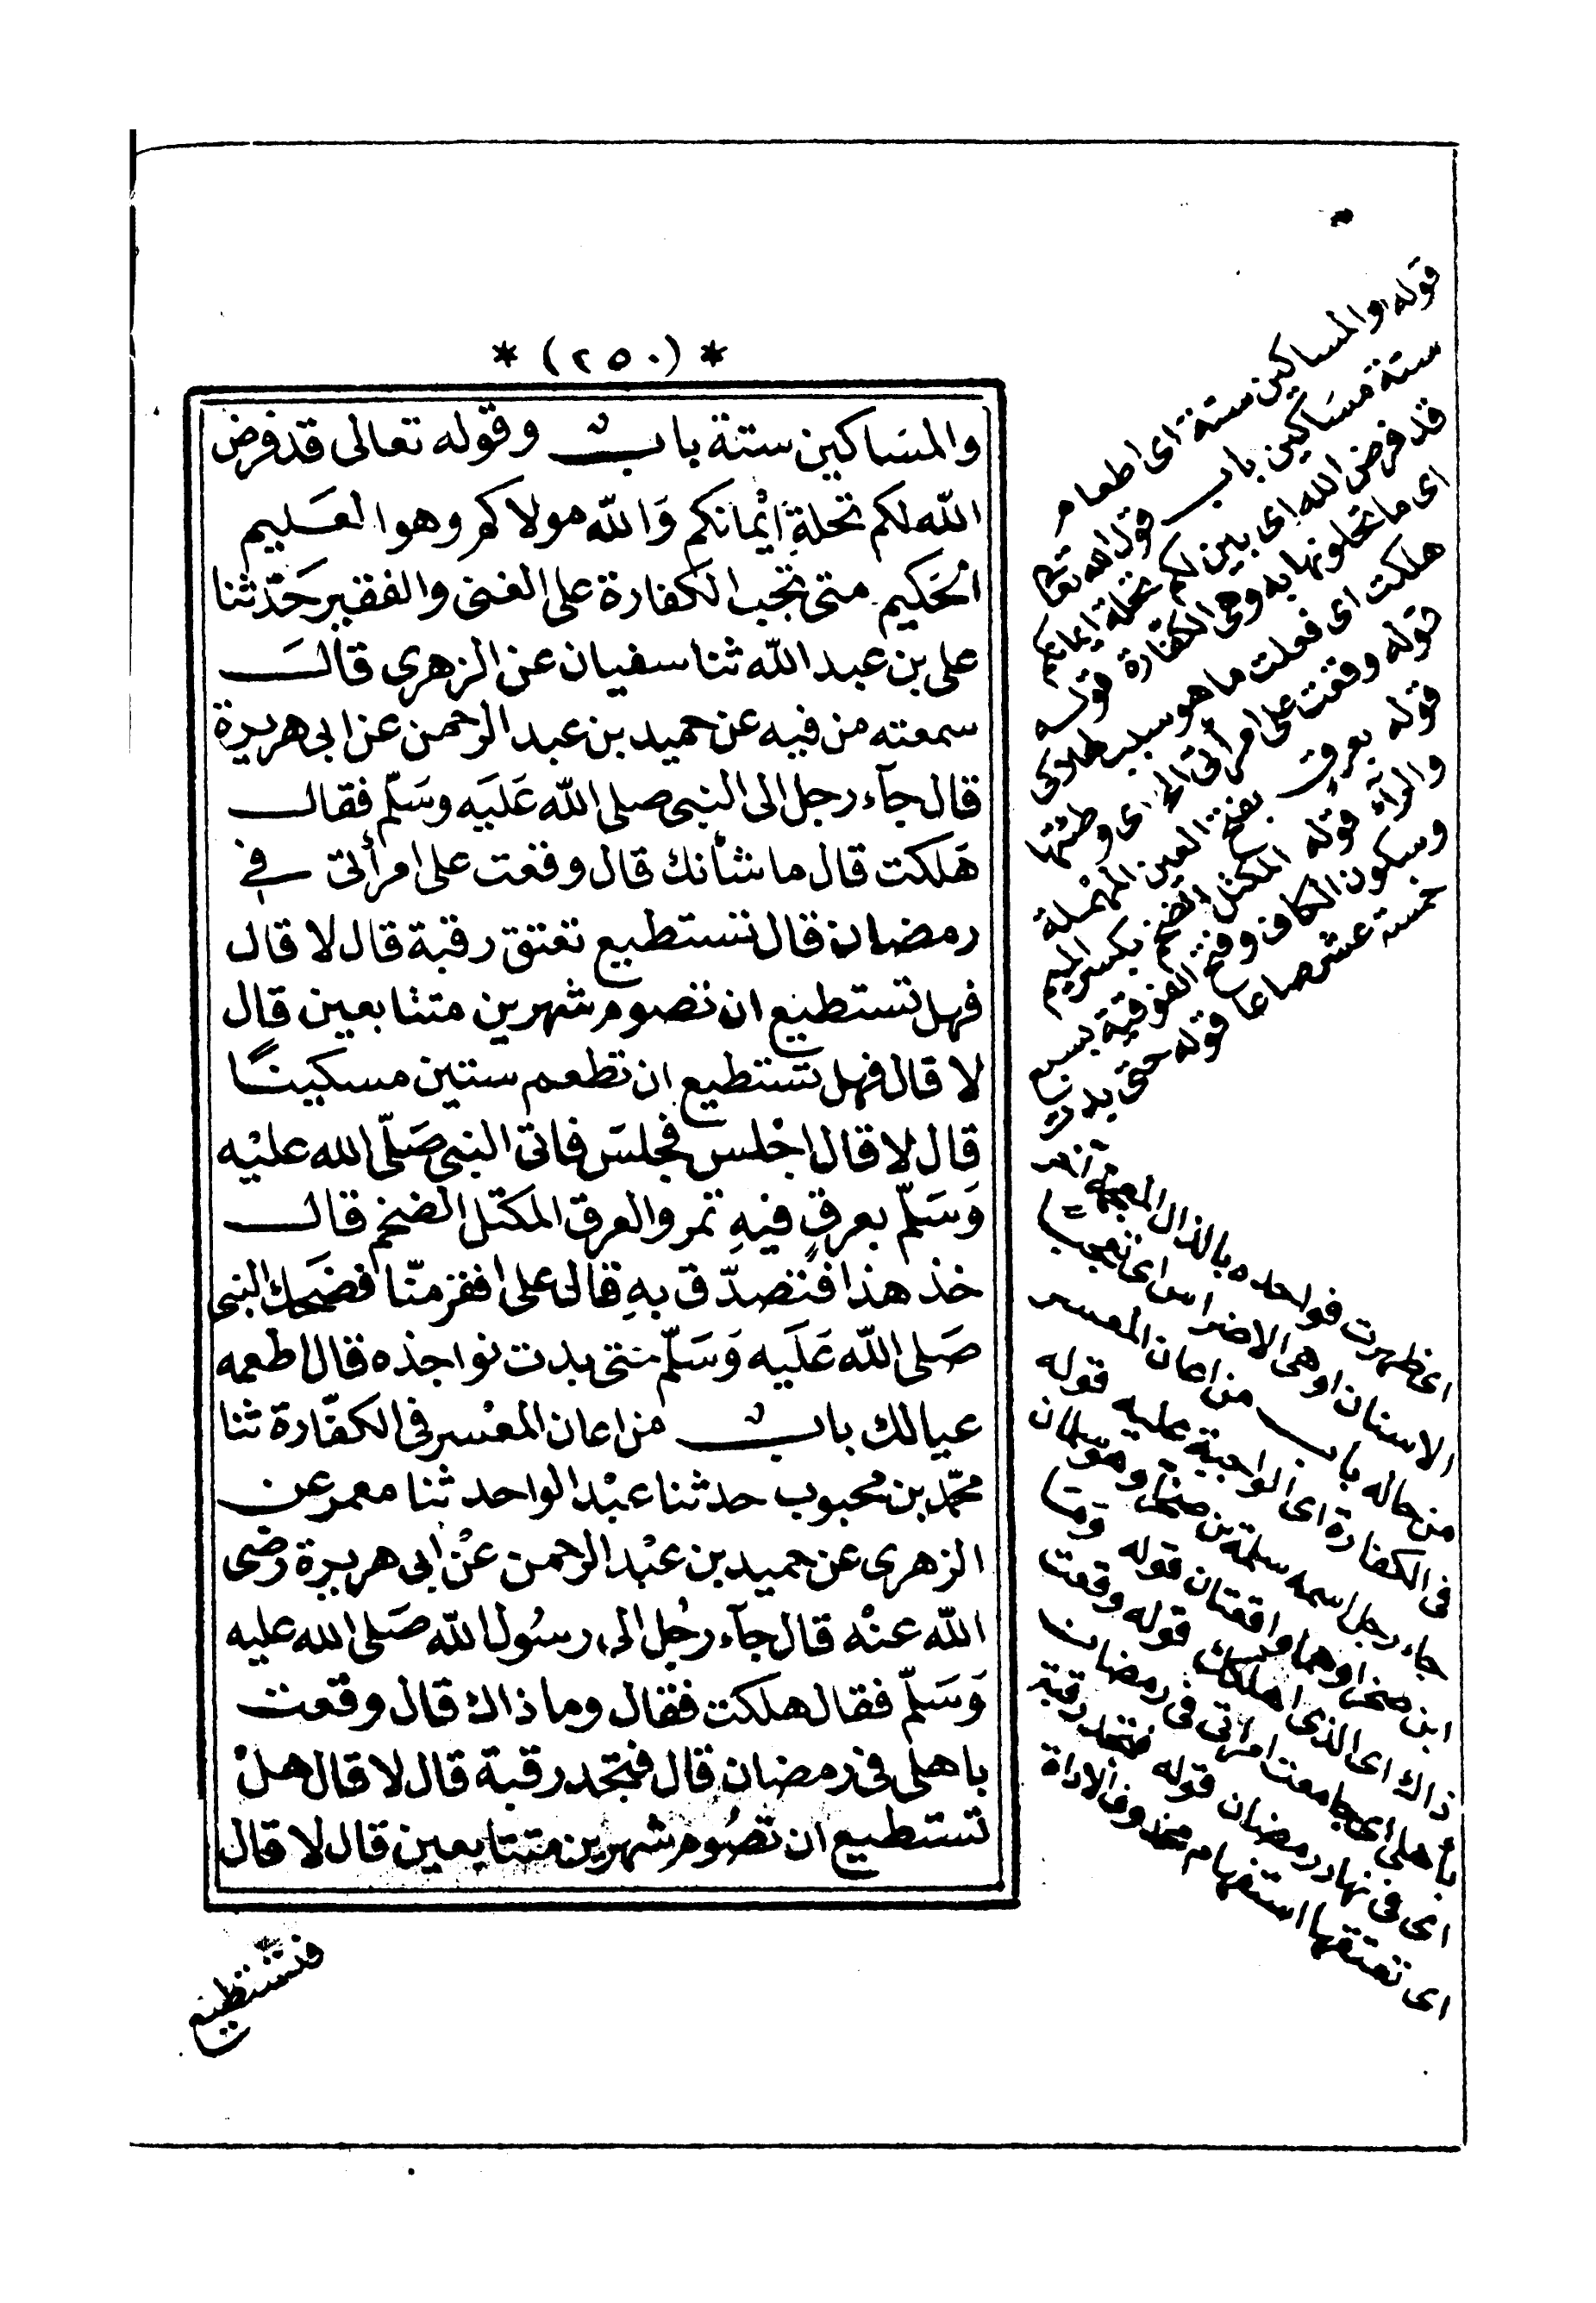 * (٢٥٠) *
والمسَاكين ستة باب وقوله تعالى قد فرض
الله لكم تحلةِ ايْمانكم وَالله مولاكم وهو العَليم
الحَكيم متى تجب الكفارة على الغنى والفقير حَدّثنا
على بن عبد الله ثنا سفيان عن الزهرى قالَ
سمعته من فيه عن حميد بن عبد الرحمن عن ابى هريرة
قال جآء رجل الى النبى صلى الله عَليَه وسَلّم فقال
هَلكت قال ما شأنك قال وقعت على امرأتى فى
رمضان قال تستطيع تعتق رقبة قال لا قال
فهل تستطيع ان تصوم شهرين متتابعين قال
لا قال فهل تستطيع ان تطعم ستين مسكينًا
قال لا قال اجْلس فجلسَ فاتى النبى صَلّى الله عليْه
وَسَلّم بعرقٍ فيهِ تمر والعرق المكتل الضخم قال
خذ هذا فتصدّق بهِ قال على افقر منّا فضحك النبى
صَلى الله عَلَيه وَسَلّم متى بدت نواجذه قال اطعمه
عيالك باب من اعان المعْسر فى الكفّارة ثنا
محمّد بن محبوب حدثنا عبْد الواحد ثنا معمر عن
الزهرى عن حميد بن عبْد الرحمن عنْ ابى هريرة رضى
الله عنْه قال جآء رجُل الى رسُول الله صَلى الله عليه
وَسَلّم فقال هلكت فقال وما ذاك قال وقعت
باهلى فى رمضان قال فتجد رقبة قال لا قال هلْ
تستطيع ان تصُوم شهرين متتابعين قال لا قال
فتستطيع
قوله والمساكين ستة اى اطعام
ستة مسَاكين باب قول الله تعالى
قد فرض الله اى بين لكم تحلة ايمانكم
اى ما تحلونها به وهى الكفارة قوله
هلكت اى فعلت ما هو سبب هلاكى
قوله وقعت على امرأتى اى وطئتها
قوله بعرق بفتح العين المهملة
والرآء قوله المكتل الضخم بكسر الميم
وسكون الكاف وفتح الفوقية يسع
خمسة عشر صاعا قوله حتى بدت
اى ظهرت نواجذه بالذال المعجمة آخر
الاسنان او هى الاضراس اى تعجبا
من حاله باب من اعان المعسر
فى الكفارة اى الواجبة عليه قوله
جاء رجل اسمه سلمة بن صخر او سلمان
ابن صخر وهما واقعتان قوله وما
ذاك اى الذى اهلكك قوله وقعت
بأهلى اى جامعت امرأتى فى رمضان
اى فى نهار رمضان قوله فتجد رقبة
اى تعتقها استفهام محذوف الاداة